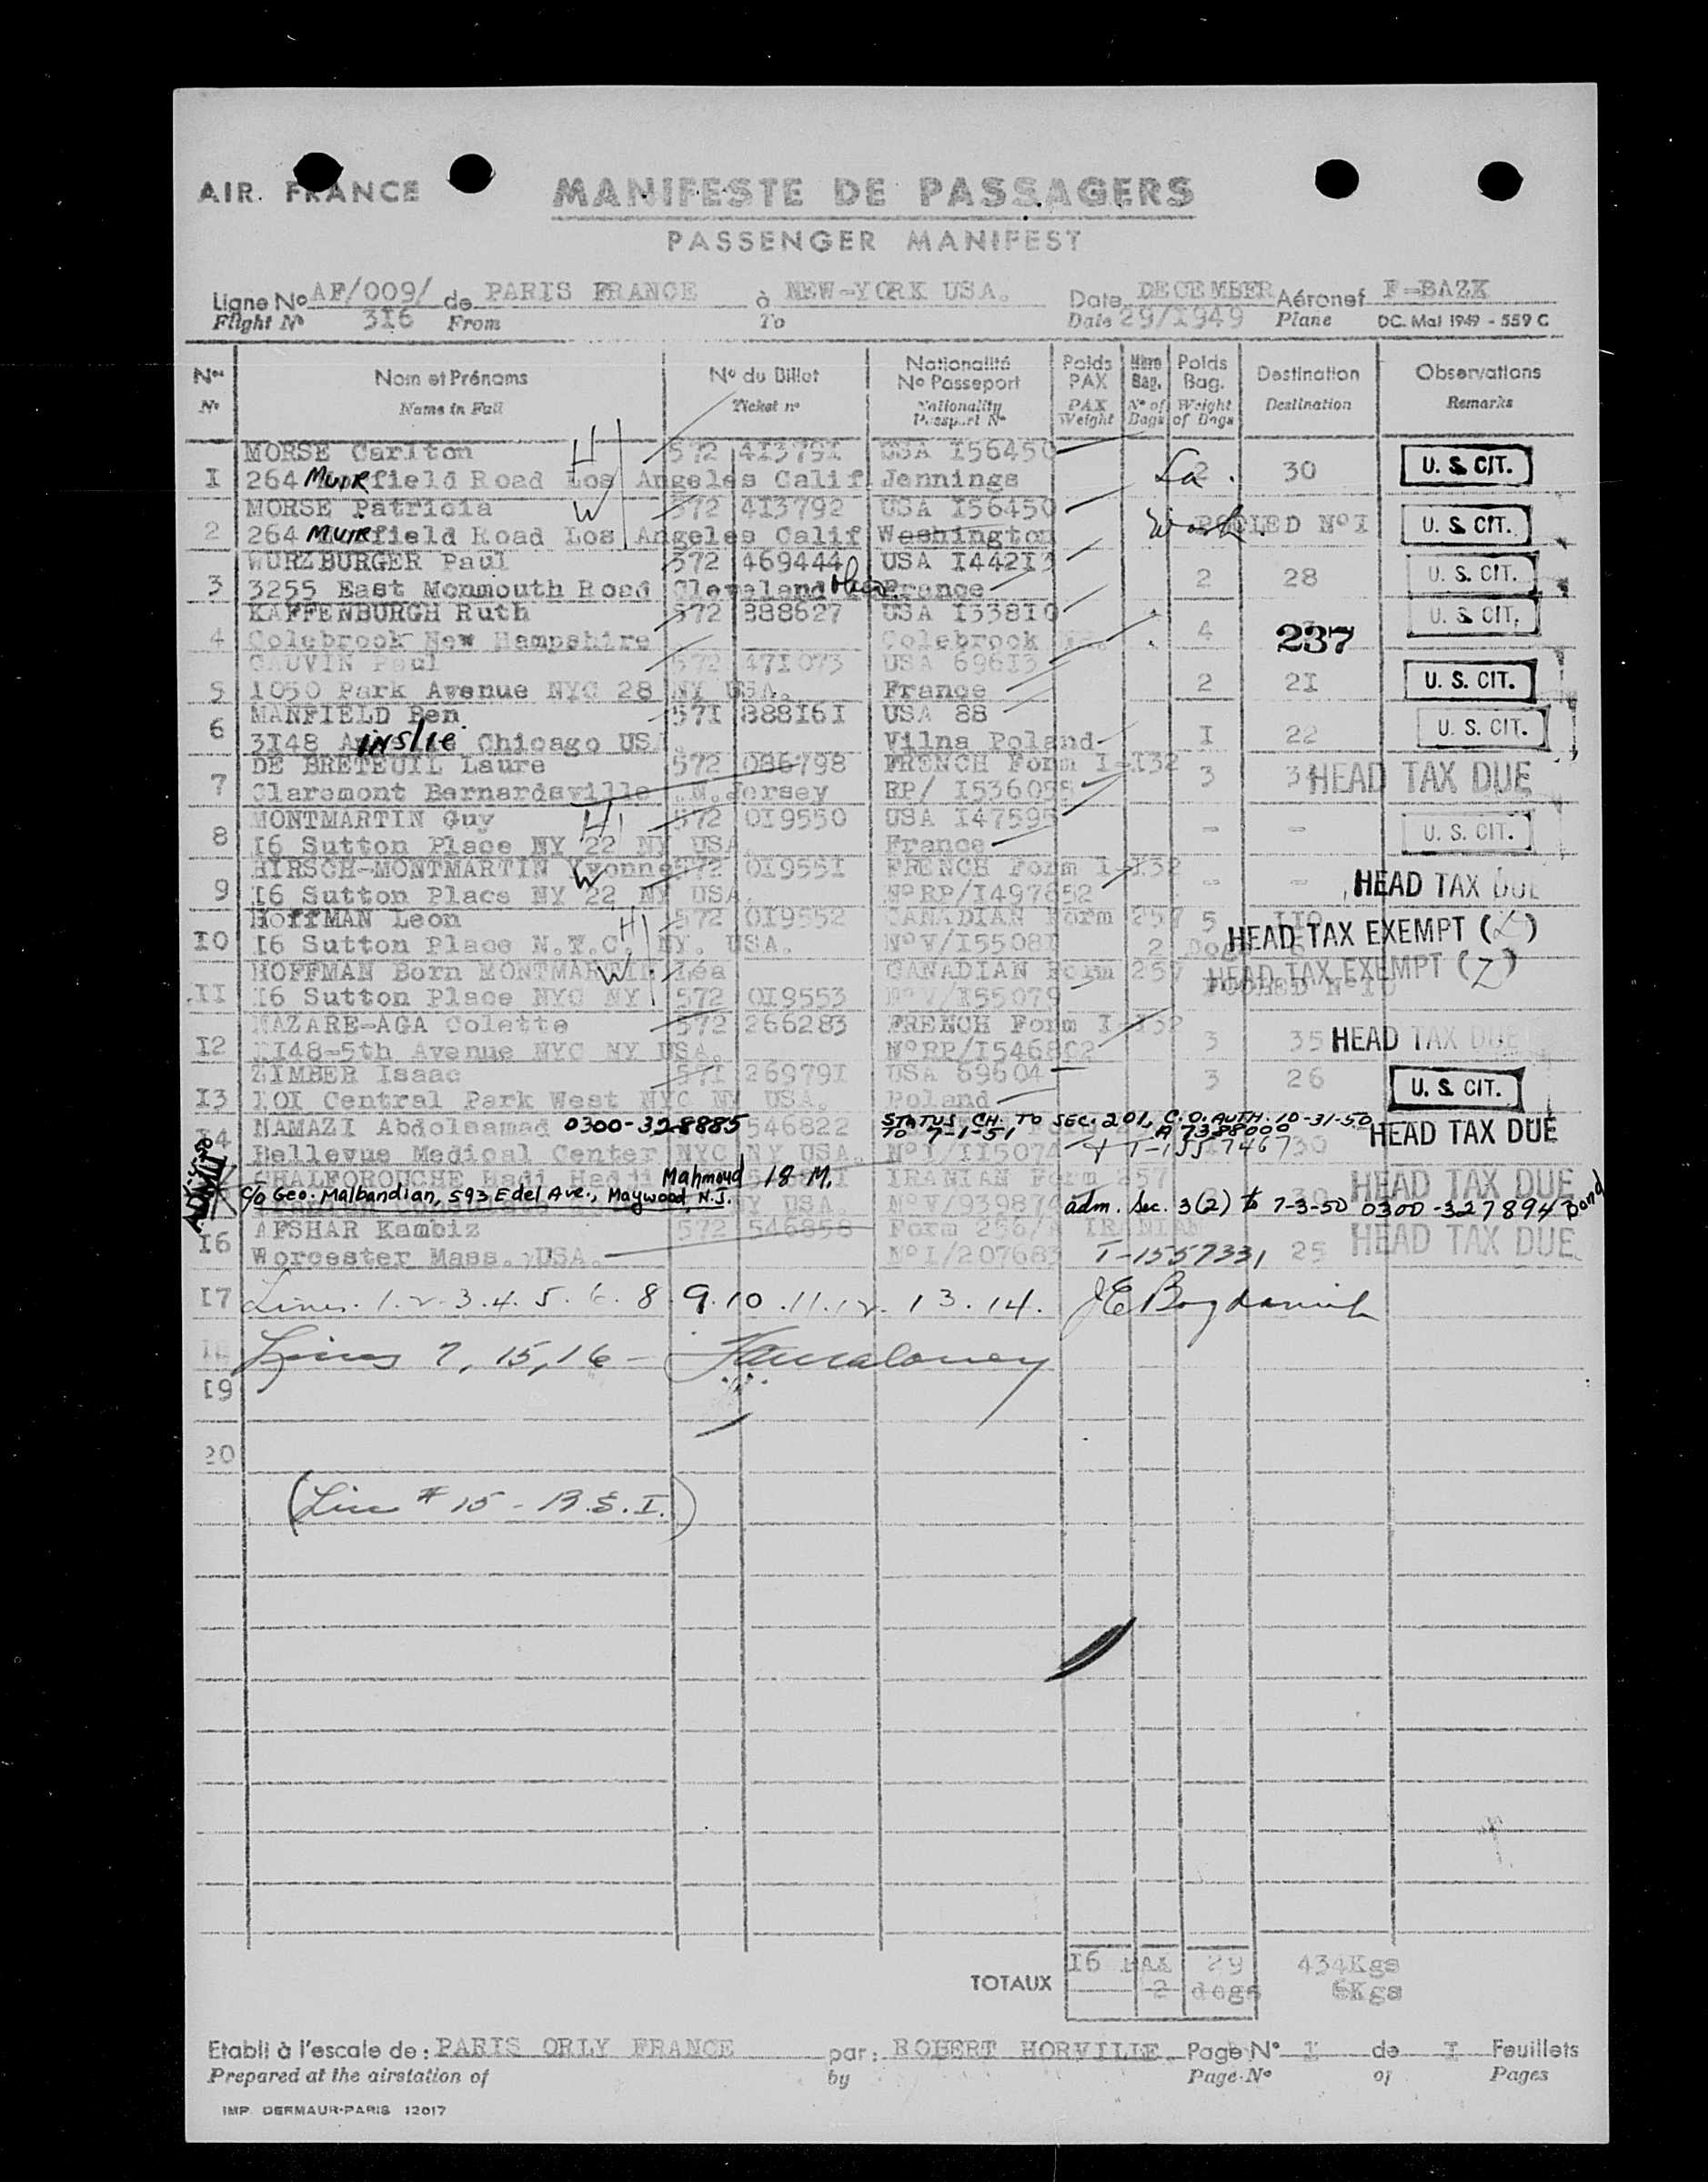 AIR FRANCE
MANIFESTE DE PASSAGERS
PASSENGER MANIFEST
Ligne No AF/009/ de PARIS FRANCE à NEW-YORK USA. Date DECEMBER Aéronef F-BAZK
Flight No 3I6 From To Date 29/I949 Plane DC. Mal 1949 - 559 C
Nos Nom et Prénoms No du Billet Nationalité No Passeport Poids PAX Nbre Bag. Poids Bag. Destination Observations
No Name in Full Ticket no Nationality Passport No PAX Weight No of Bags Weight of Bags Destination Remarks
MORSE Carlton H 572 4I379I USA I56450
I 264 MUIRfield Road Los Angeles Calif Jennings La. 2 30 U. S. CIT.
MORSE Patricia W 572 4I3792 USA I56450
2 264 MUIRfield Road Los Angeles Calif Washington Wash. N°I U. S. CIT.
WURZBURGER Paul 572 469444 USA I442I3
3 3255 East Monmouth Road Cleveland Ohio France 2 28 U. S. CIT.
KAFFENBURGH Ruth 572 888627 USA I338I0
4 Colebrook New Hampshire Colebrook 4 237 U. S. CIT.
CAUVIN Paul 572 47I073 USA 696I3
5 I050 Park Avenue NYC 28 NY USA. France 2 2I U. S. CIT.
MANFIELD Ben 57I 888I6I USA 88
6 3I48 INSlie Chicago USA Vilna Poland I 22 U. S. CIT.
DE BRETEUIL Laure 572 086798 FRENCH Form I-I32
7 Claremont Bernardsville .N.Jersey RP/ I536055 3 HEAD TAX DUE
MONTMARTIN Guy H 572 0I9550 USA I47595
8 I6 Sutton Place NY 22 NY USA France - - U. S. CIT.
HIRSCH-MONTMARTIN Yvonne W 572 0I955I FRENCH Form I-I32
9 I6 Sutton Place NY 22 NY USA. N°RP/I497852 - - HEAD TAX DUE
HOFFMAN Leon H 572 0I9552 CANADIAN Form 257 5 II0
I0 I6 Sutton Place N.Y.C. NY. USA. N°V/I5508I 2 Dogs HEAD TAX EXEMPT
HOFFMAN Born MONTMARTIN W Léa CANADIAN Form 257 HEAD TAX EXEMPT
II I6 Sutton Place NYC NY 572 0I9553 N°V/I55079 POOLED N°I0
NAZARE-AGA Colette 572 266283 FRENCH Form I-I32
I2 II48-5th Avenue NYC NY USA. N°RP/I546802 3 35 HEAD TAX DUE
ZIMBER Isaac 57I 26979I USA 69604 3 26
I3 I0I Central Park West NYC NY USA. Poland U. S. CIT.
NAMAZI Abdolsamad 0300-328885 546822 STATUS CH. TO SEC. 201, C.O. AUTH. 10-31-50
TO 7-1-51 A 7398000
I4 Bellevue Medical Center NYC NY USA. N°I/II5074 30 HEAD TAX DUE
KHALFOROUCHE Hadi Hadji Mahmoud 18-M. IRANIAN Form 257 HEAD TAX DUE
C/o Geo. Malbandian, 593 Edel Ave., Maywood, N.J. NY USA. N°V/939874 adm. Sec. 3(2) to 7-3-50 0300-327894 Bond
AFSHAR Kambiz 572 546858 Form 256/ IRANIAN
I6 Worcester Mass. USA. N°I/207683 T-1557331 25 HEAD TAX DUE
I7 Lines. 1. 2. 3. 4. 5. 6. 8. 9. 10. 11. 12. 13. 14.
I8 Lines 7, 15, 16 -
I9
20
(Line # 15 - B.S.I.)
I6 PAX 29 434Kgs
TOTAUX 2 dogs 6Kgs
Etabli à l'escale de : PARIS ORLY FRANCE par : ROBERT HORVILLE. Page N° I de I Feuillets
Prepared at the airstation of by Page N° of Pages
IMP. DERMAUR-PARIS 12017